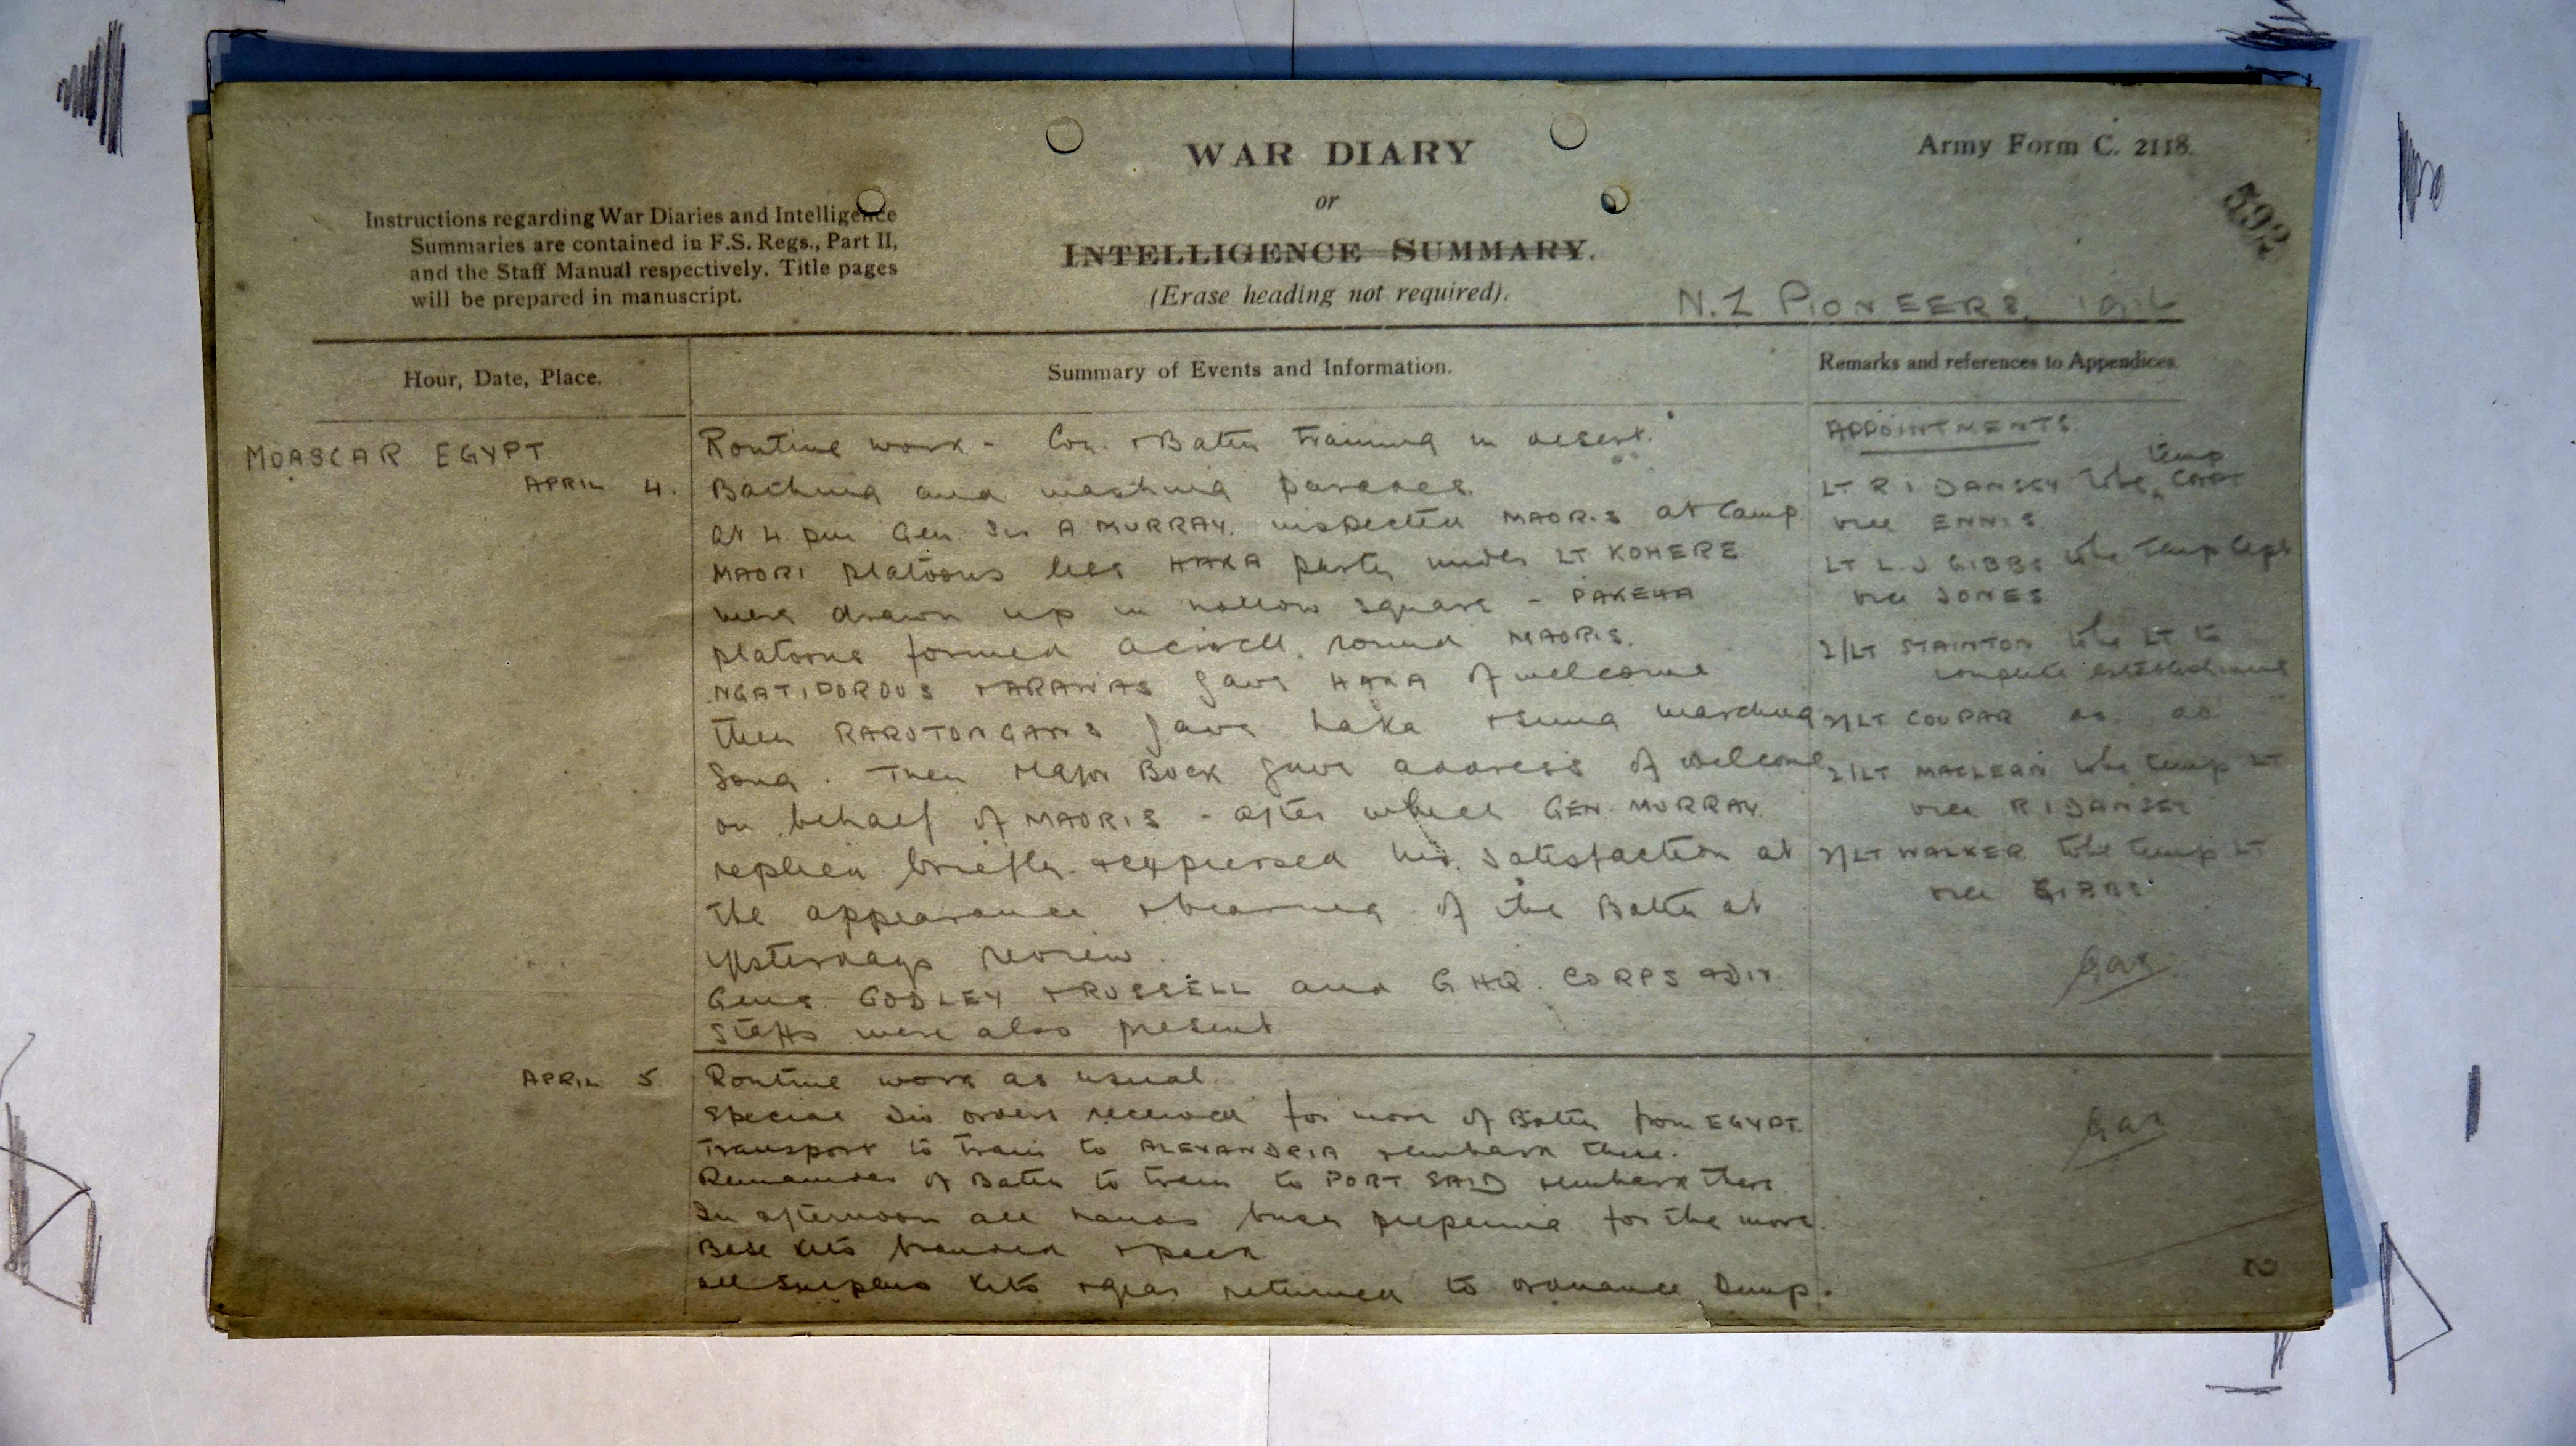 WAR DIARY
or
INTELLIGENCE SUMMARY.
(Erase heading not required).
Army Form C. 2118.
592
Instructions regarding War Diaries and Intelligence
Summaries are contained in F.S. Regs., Part II,
and the Staff Manual respectively. Title pages
will be prepared in manuscript.
N.Z PIONEERS, 1916
Hour, Date, Place.
Summary of Events and Information.
Remarks and references to Appendices.
MOASCAR EGYPT
APRIL 4.
Routine work - Coy. + Battn training in desert.
Bathing and washing parades.
At 4 pm Gen Sir A MURRAY. inspected MAORIS at Camp
MAORI platoons less HAKA party under LT KOHERE
were drawn up in hollow square - PAKEHA
platoons formed a circle round MAORIS.
NGATIPOROUS + ARAWAS gave HAKA of welcome
Then RAROTONGANS gave haka + sung marching
Song. Then Major BUCK gave address of welcome
on behalf of MAORIS - after which GEN. MURRAY
replied briefly + expressed his satisfaction at
the appearance + bearing of the Battn at
yesterdays review.
Gens. GODLEY + RUSSELL and GHQ. CORPS + DIV.
Staffs were also present
APPOINTMENTS.
LT R I DANSEY to be temp CAPT
vice ENNIS
LT L J GIBBS to be Temp Capt
vice JONES
2/LT STAINTON to be LT to
complete establishment
2/LT COUPAR do. do
2/LT MACLEAN to be temp LT
vice R I DANSEY
2/LT WALKER to be temp LT
vice GIBBS
APRIL 5
Routine work as usual.
Special Div orders received for move of Battn from EGYPT.
Transport to train to ALEXANDRIA + embark there.
Remainder of Battn to train to PORT SAID + embark there
In afternoon all hands busy preparing for the move.
Base kits branded + packed
All surplus kits + gear returned to ordnance Dump.